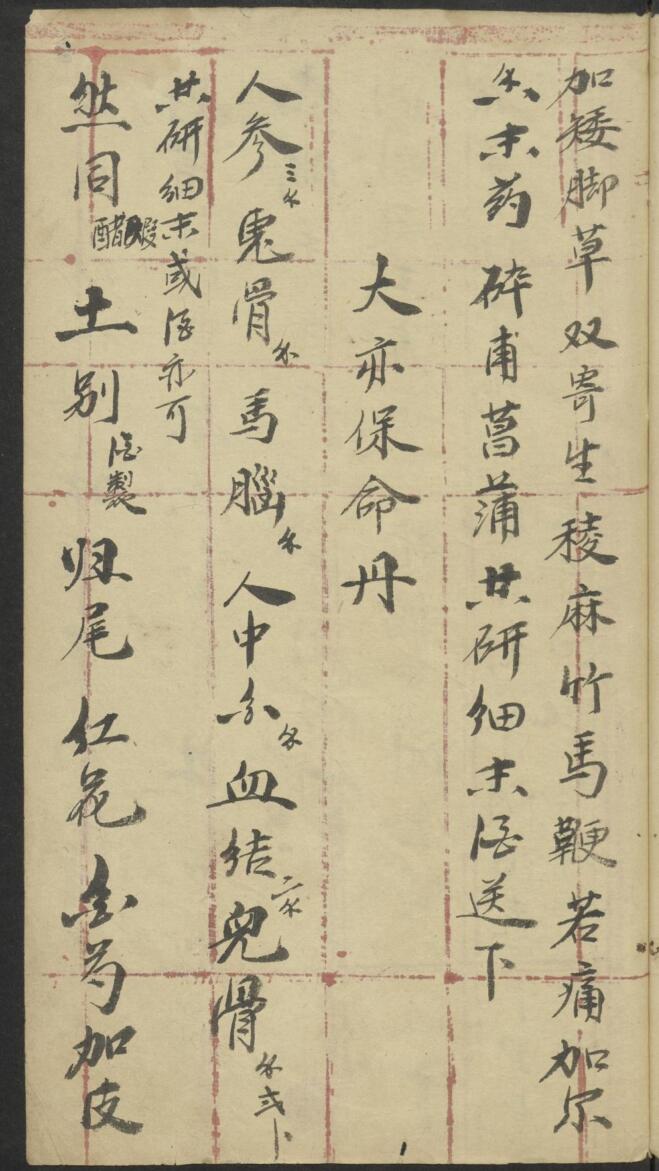 加矮脚草双寄生稜麻竹马鞭若痛加尔
尔末药碎甫菖蒲共研细末酒送下
大亦保命丹
人参三分鬼骨分馬腦分人中分血结二分兒骨分
共研细末或酒亦可
然同醋煅土别酒製归尾红花赤芍加皮